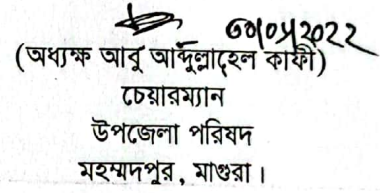 (অধ্যক্ষ আবু আব্দুল্লাহেল কাফী)
চেয়ারম্যান
উপজেলা পরিষদ
মহম্মদপুর, মাগুরা।